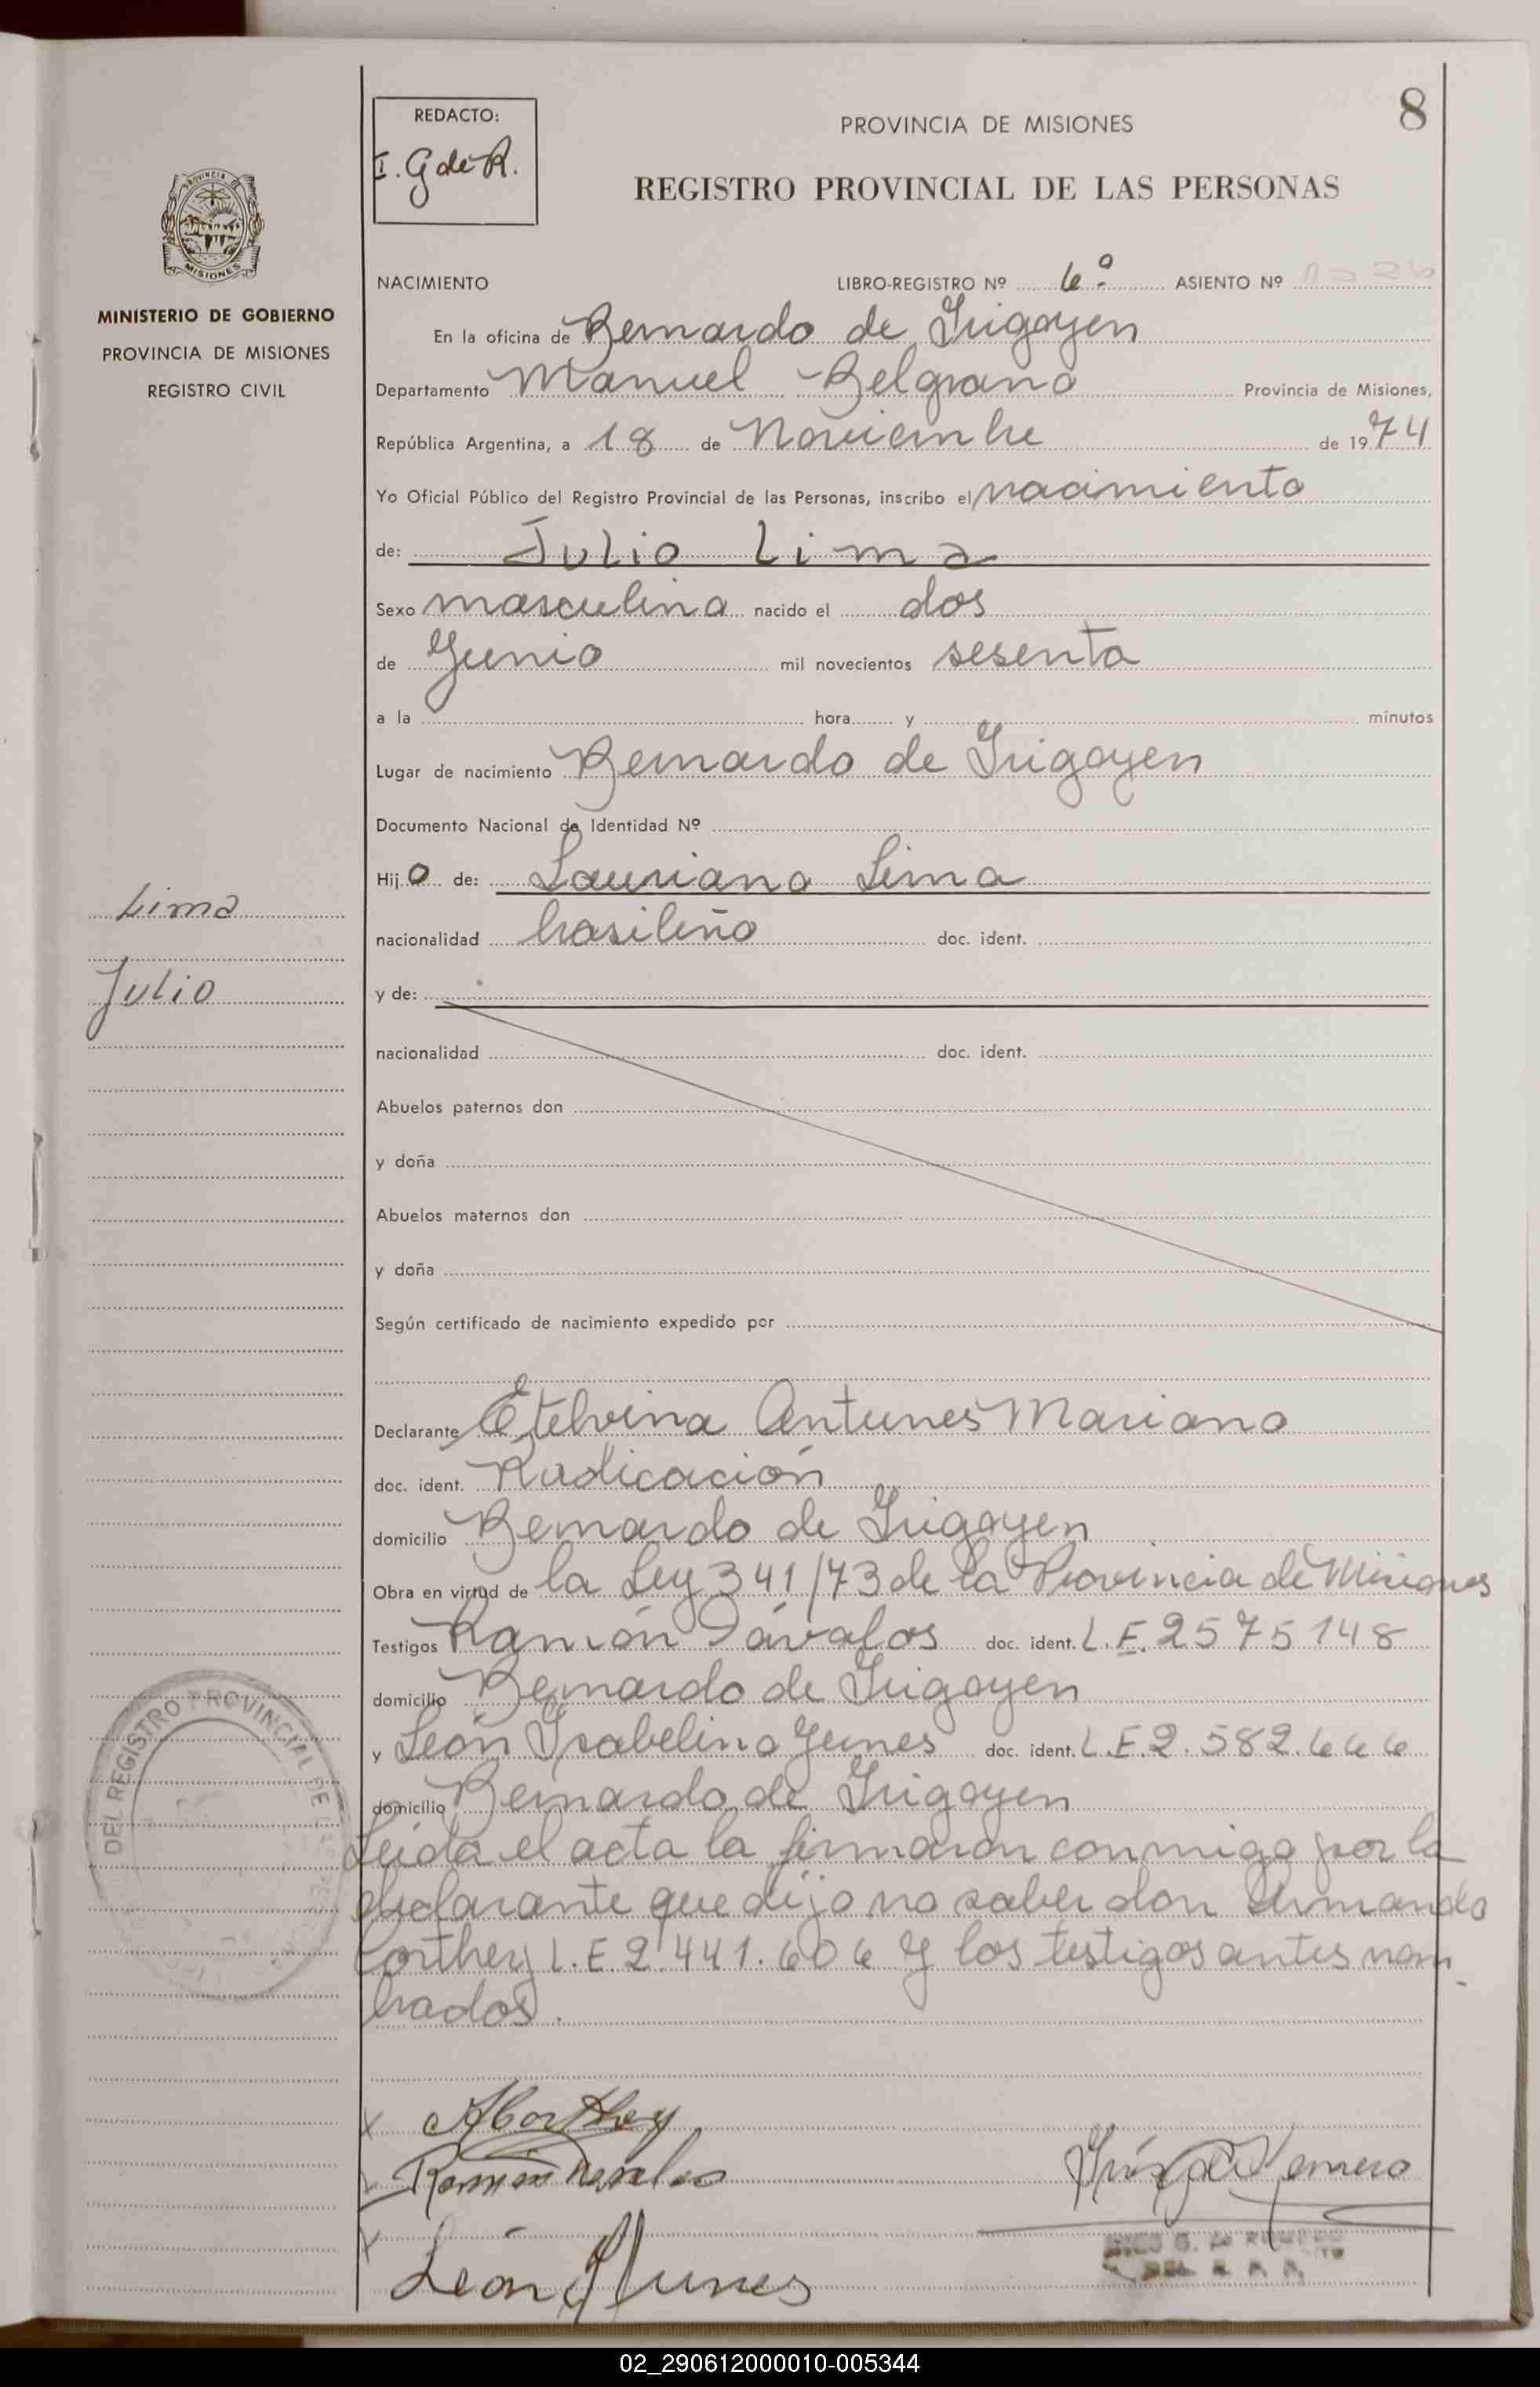 8
REDACTO:
I. G de R.
PROVINCIA DE MISIONES
REGISTRO PROVINCIAL DE LAS PERSONAS
PROVINCIA DE
MISIONES
MINISTERIO DE GOBIERNO
PROVINCIA DE MISIONES
REGISTRO CIVIL
NACIMIENTO LIBRO-REGISTRO Nº 6º ASIENTO Nº
En la oficina de Bernardo de Irigoyen
Departamento Manuel Belgrano Provincia de Misiones,
República Argentina, a 18 de Noviembre de 1974
Yo Oficial Público del Registro Provincial de las Personas, inscribo el nacimiento
de: Julio Lima
Sexo masculino nacido el dos
de Junio mil novecientos sesenta
a la hora y minutos
Lugar de nacimiento Bernardo de Irigoyen
Documento Nacional de Identidad Nº
Hijo de: Lauriano Lima
nacionalidad brasileño doc. ident.
y de:
nacionalidad doc. ident.
Abuelos paternos don
y doña
Abuelos maternos don
y doña
Según certificado de nacimiento expedido por
Lima
Julio
Declarante Etelvina Antunes Mariano
doc. ident. Radicación
domicilio Bernardo de Irigoyen
Obra en virtud de la Ley 341/73 de la Provincia de Misiones
Testigos Ramón Dávalos doc. ident. L.E. 2575148
domicilio Bernardo de Irigoyen
y León Isabelino Yunes doc. ident. L.E. 2.582.666
domicilio Bernardo de Irigoyen
Leida el acta la firmaron conmigo por la
declarante que dijo no saber don Armando
Corthey L.E. 2.441.606 y los testigos antes nom
brados.
DEL REGISTRO PROVINCIAL DE
ACorthey
Ramón Davalos
León Yunes
Inés G de Romero
INES G. de ROMERO
DEL R. P. P.
02_290612000010-005344